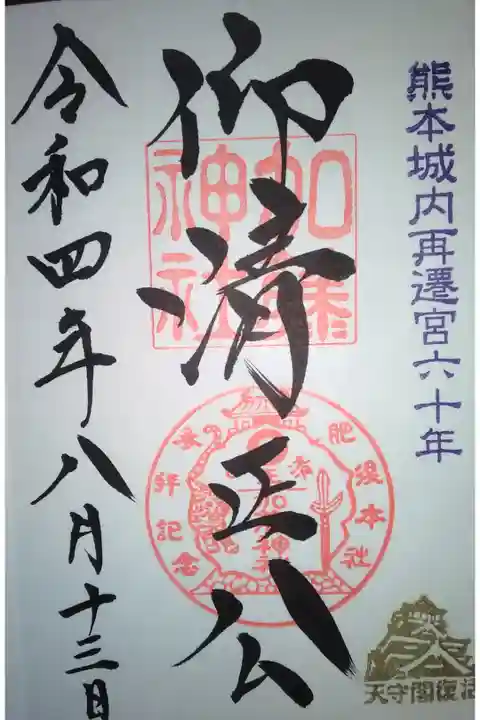 熊本城内再遷宮六十年
仰清正公
加藤神社
肥後本社
参拝記念
令和四年八月十三日
天守閣復活